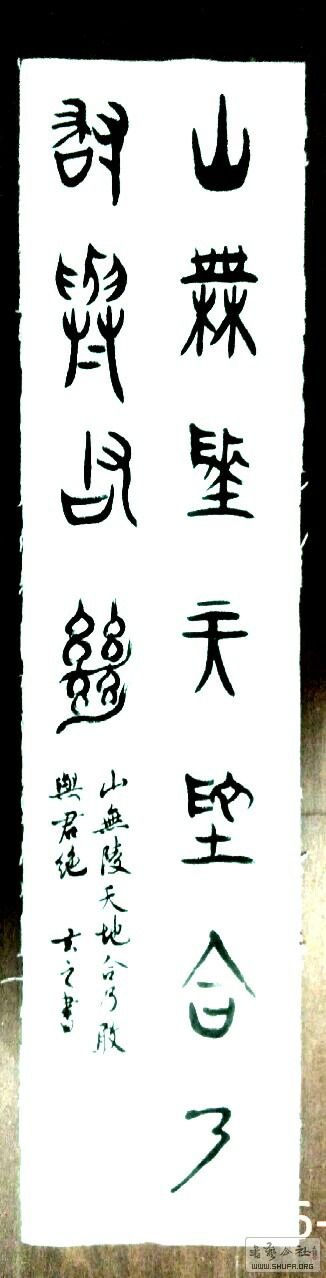 山無陵天地合乃
敢與君絕
山無陵天地合乃敢
與君絕 玄之書
5-
書藝公社
WWW.SHUFA.ORG